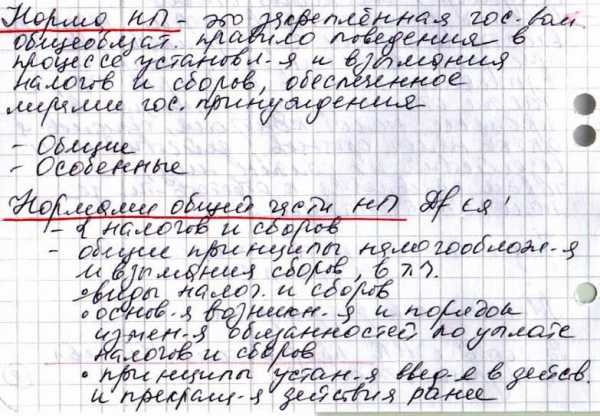 Норма НП - это закреплённая гос-вом
общеобязат. правило поведения в
процессе установл-я и взымания
налогов и сборов, обеспеченное
мерами гос. принуждения
- Общие
- Особенные
Нормами общей части НП ся:
- налогов и сборов
- общие принципы налогооблож-я
и взымания сборов, в т.ч.
• виды налог. и сборов
• основ-я возникн-я и порядок
измен-я обязанностей по уплате
налогов и сборов
• принципы устан-я введ-я в действ.
и прекращ-я действия ранее